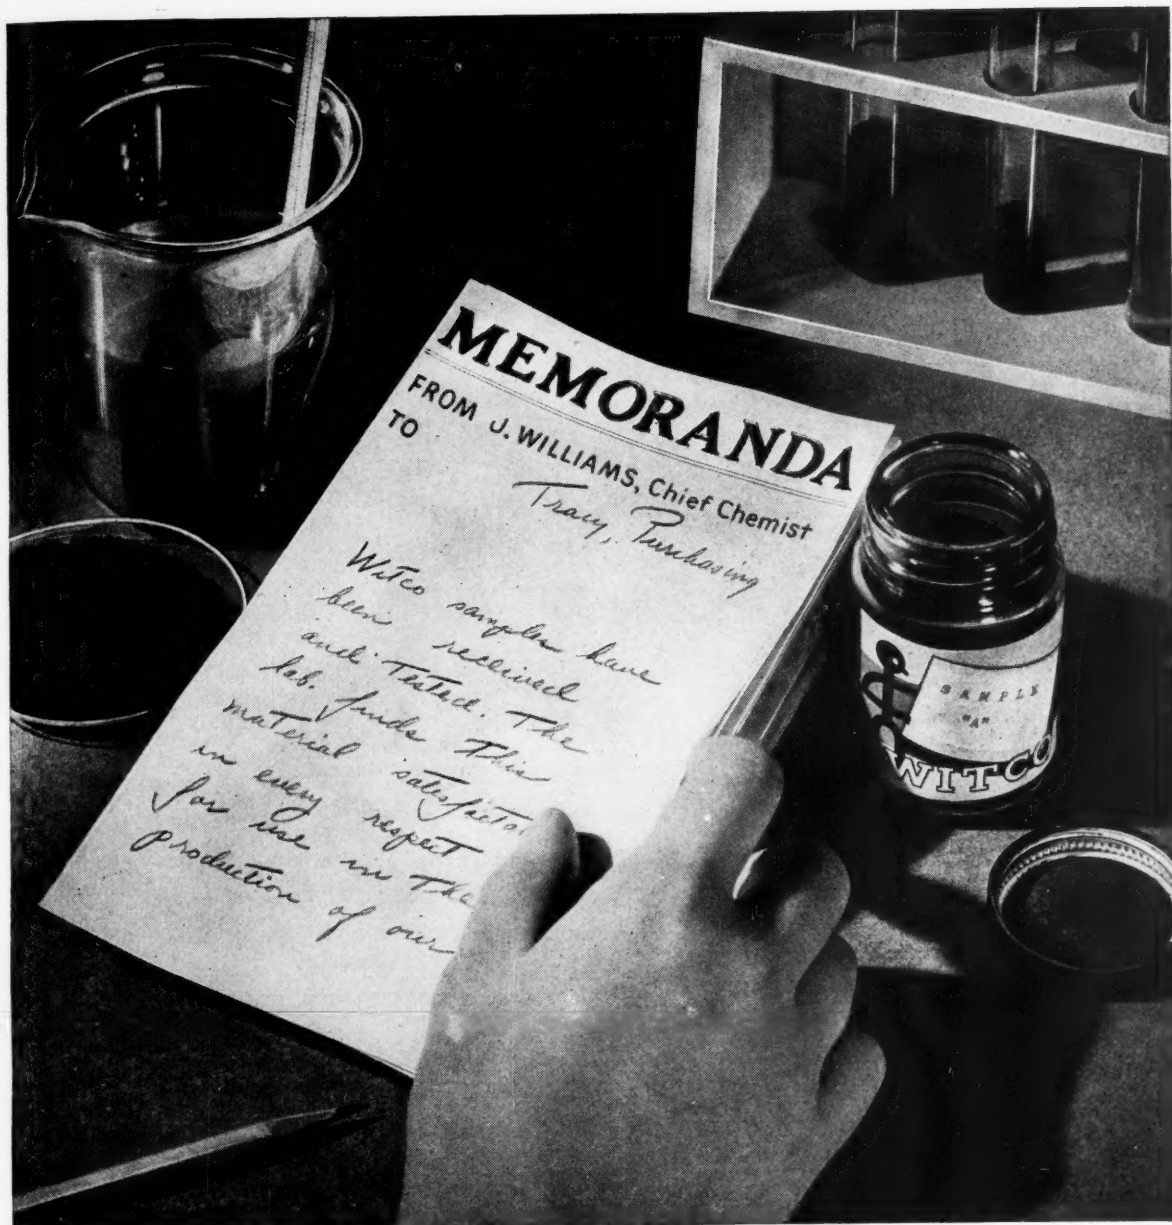 MEMORANDA
FROM J. WILLIAMS, Chief Chemist
TO
Tracy, Purchasing
Witco samples have
been received
and tested. The
lab. finds this
material satisfacto
in every respect
for use in the
production of our
SAMPLE
"A"
WITCO